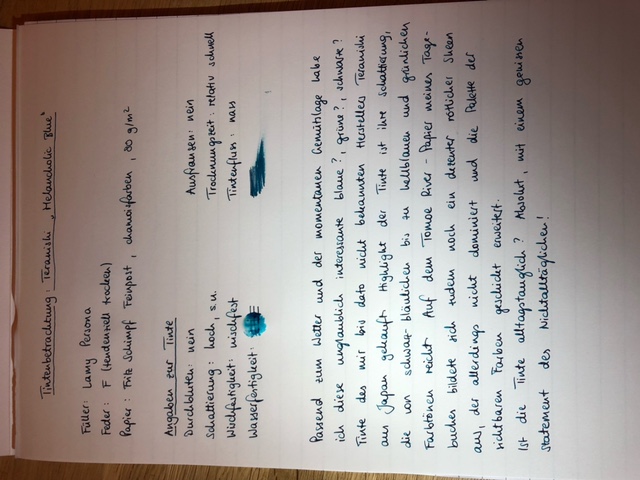 Tintenbetrachtung: Teranishi „Melancholic Blue“
Füller: Lamy Persona
Feder: F (tendenziell trocken)
Papier: Fritz Schimpf Feinpost, chamoisfarben, 80 g/m²
Angaben zur Tinte
Durchbluten: nein
Ausfransen: nein
Schattierung: hoch, s.u.
Trocknungszeit: relativ schnell
Wischfestigkeit: wischfest
Tintenfluss: nass
Wasserfestigkeit:
Passend zum Wetter und der momentanen Gemütslage habe
ich diese unglaublich interessante blaue?, grüne?, schwarze?
Tinte des mir bis dato nicht bekannten Herstellers Teranishi
aus Japan gekauft. Highlight der Tinte ist ihre Schattierung,
die von schwarz-bläulichen bis zu hellblauen und grünlichen
Farbtönen reicht. Auf dem Tomoe River-Papier meines Tage-
buches bildete sich zudem noch ein dezenter rötlicher Sheen
aus, der allerdings nicht dominiert und die Palette der
sichtbaren Farben geschickt erweitert.
Ist die Tinte alltagstauglich? Absolut, mit einem gewissen
Statement des Nichtalltäglichen!